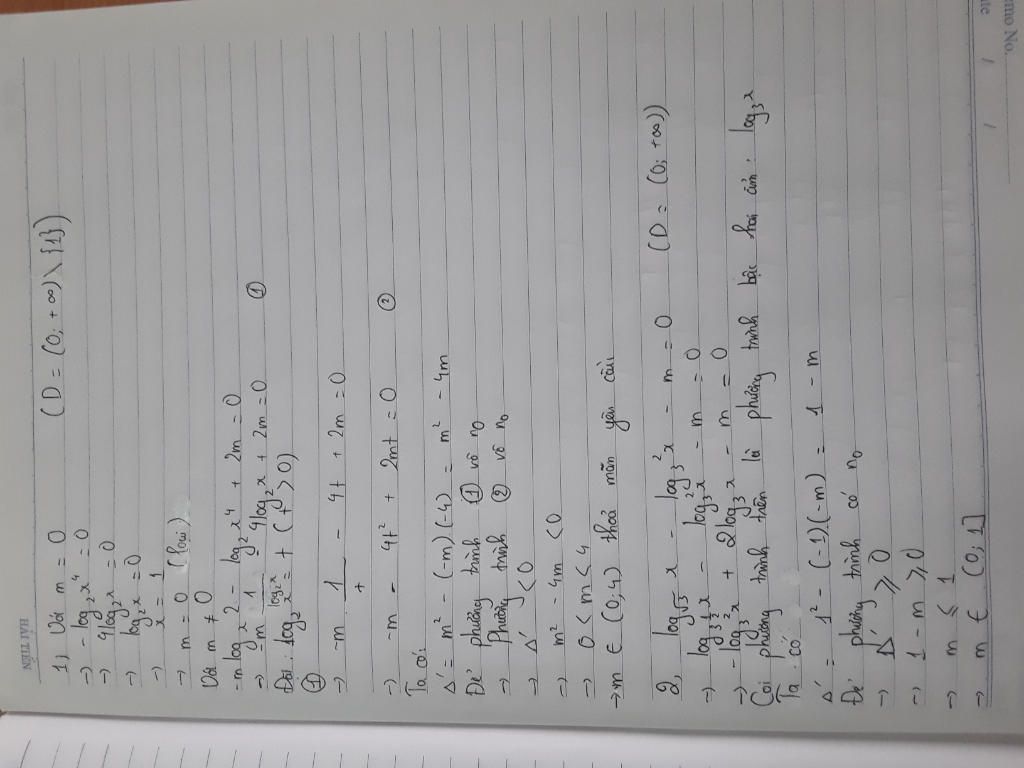 HẢI TIẾN
Memo No.
Date / /
1, Với m = 0 (D = (0; +∞) \ {1})
→ - log₂x⁴ = 0
→ 4log₂x = 0
→ log₂x = 0
→ x = 1
→ m = 0 (loại)
Với m ≠ 0
-m logₓ2 - log₂x⁴ + 2m = 0
→ -m 1/log₂x - 4log₂x + 2m = 0 ①
Đặt: log₂x = t (t > 0)
①
→ -m · 1/t - 4t + 2m = 0
→ -m - 4t² + 2mt = 0 ②
Ta có:
Δ' = m² - (-m)(-4) = m² - 4m
Để phương trình ① vô n₀
→ Phương trình ② vô n₀
→ Δ' < 0
→ m² - 4m < 0
→ 0 < m < 4
→ m ∈ (0; 4) thoả mãn yêu cầu
2, log√3 x - log₃²x - m = 0 (D = (0; +∞))
→ log₃^½ x - log₃²x - m = 0
→ -log₃²x + 2log₃x - m = 0
Coi phương trình trên là phương trình bậc hai ẩn: log₃x
Ta có:
Δ' = 1² - (-1)(-m) = 1 - m
Để phương trình có n₀
→ Δ' ⩾ 0
→ 1 - m ⩾ 0
→ m ≤ 1
→ m ∈ (0; 1]